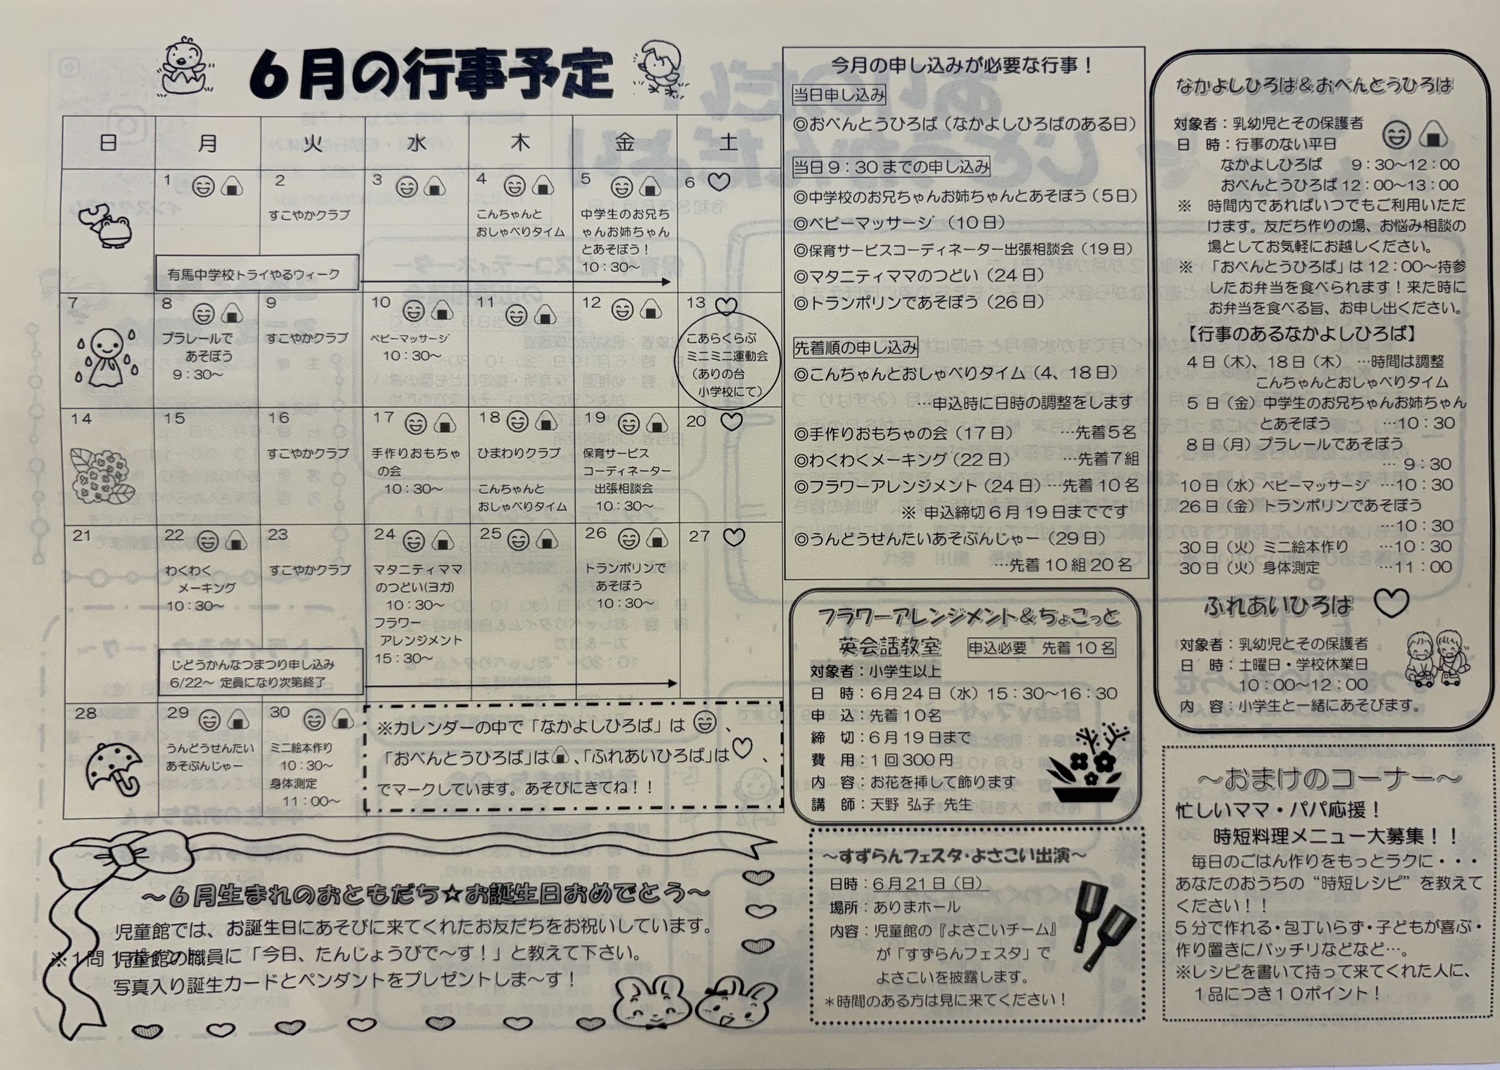 6月の行事予定
日 月 火 水 木 金 土
1
2
すこやかクラブ
3
4
こんちゃんと
おしゃべりタイム
5
中学生のお兄ち
ゃんお姉ちゃん
とあそぼう!
10:30~
6
有馬中学校トライやるウィーク
7
8
プラレールで
あそぼう
9:30~
9
すこやかクラブ
10
ベビーマッサージ
10:30~
11
12
13
こあらくらぶ
ミニミニ運動会
(ありの台
小学校にて)
14
15
16
すこやかクラブ
17
手作りおもちゃ
の会
10:30~
18
ひまわりクラブ
こんちゃんと
おしゃべりタイム
19
保育サービス
コーディネーター
出張相談会
10:30~
20
21
22
わくわく
メーキング
10:30~
23
すこやかクラブ
24
マタニティママ
のつどい(ヨガ)
10:30~
フラワー
アレンジメント
15:30~
25
26
トランポリンで
あそぼう
10:30~
27
じどうかんなつまつり申し込み
6/22~ 定員になり次第終了
28
29
うんどうせんたい
あそぶんじゃー
30
ミニ絵本作り
10:30~
身体測定
11:00~
※カレンダーの中で「なかよしひろば」は 、
「おべんとうひろば」は 、「ふれあいひろば」は 、
でマークしています。あそびにきてね!!
~6月生まれのおともだち☆お誕生日おめでとう~
児童館では、お誕生日にあそびに来てくれたお友だちをお祝いしています。
児童館の職員に「今日、たんじょうびで~す!」と教えて下さい。
写真入り誕生カードとペンダントをプレゼントしま~す!
今月の申し込みが必要な行事!
当日申し込み
◎おべんとうひろば(なかよしひろばのある日)
当日9:30までの申し込み
◎中学校のお兄ちゃんお姉ちゃんとあそぼう(5日)
◎ベビーマッサージ(10日)
◎保育サービスコーディネーター出張相談会(19日)
◎マタニティママのつどい(24日)
◎トランポリンであそぼう(26日)
先着順の申し込み
◎こんちゃんとおしゃべりタイム(4、18日)
…申込時に日時の調整をします
◎手作りおもちゃの会(17日) …先着5名
◎わくわくメーキング(22日) …先着7組
◎フラワーアレンジメント(24日)…先着10名
※ 申込締切6月19日までです
◎うんどうせんたいあそぶんじゃー(29日)
…先着10組20名
フラワーアレンジメント&ちょこっと
英会話教室 申込必要 先着10名
対象者:小学生以上
日 時:6月24日(水)15:30~16:30
申 込:先着10名
締 切:6月19日まで
費 用:1回300円
内 容:お花を挿して飾ります
講 師:天野 弘子 先生
~すずらんフェスタ・よさこい出演~
日時:6月21日(日)
場所:ありまホール
内容:児童館の『よさこいチーム』
が「すずらんフェスタ」で
よさこいを披露します。
*時間のある方は見に来てください!
なかよしひろば&おべんとうひろば
対象者:乳幼児とその保護者
日 時:行事のない平日
なかよしひろば 9:30~12:00
おべんとうひろば12:00~13:00
※ 時間内であればいつでもご利用いただ
けます。友だち作りの場、お悩み相談の
場としてお気軽にお越しください。
※ 「おべんとうひろば」は12:00~持参
したお弁当を食べられます!来た時に
お弁当を食べる旨、お申し出ください。
【行事のあるなかよしひろば】
4日(木)、18日(木) …時間は調整
こんちゃんとおしゃべりタイム
5日(金)中学生のお兄ちゃんお姉ちゃん
とあそぼう …10:30
8日(月)プラレールであそぼう
…9:30
10日(水)ベビーマッサージ …10:30
26日(金)トランポリンであそぼう
…10:30
30日(火)ミニ絵本作り …10:30
30日(火)身体測定 …11:00
ふれあいひろば
対象者:乳幼児とその保護者
日 時:土曜日・学校休業日
10:00~12:00
内 容:小学生と一緒にあそびます。
~おまけのコーナー~
忙しいママ・パパ応援!
時短料理メニュー大募集!!
毎日のごはん作りをもっとラクに・・・
あなたのおうちの“時短レシピ”を教えて
ください!!
5分で作れる・包丁いらず・子どもが喜ぶ・
作り置きにバッチリなどなど…。
※レシピを書いて持って来てくれた人に、
1品につき10ポイント!